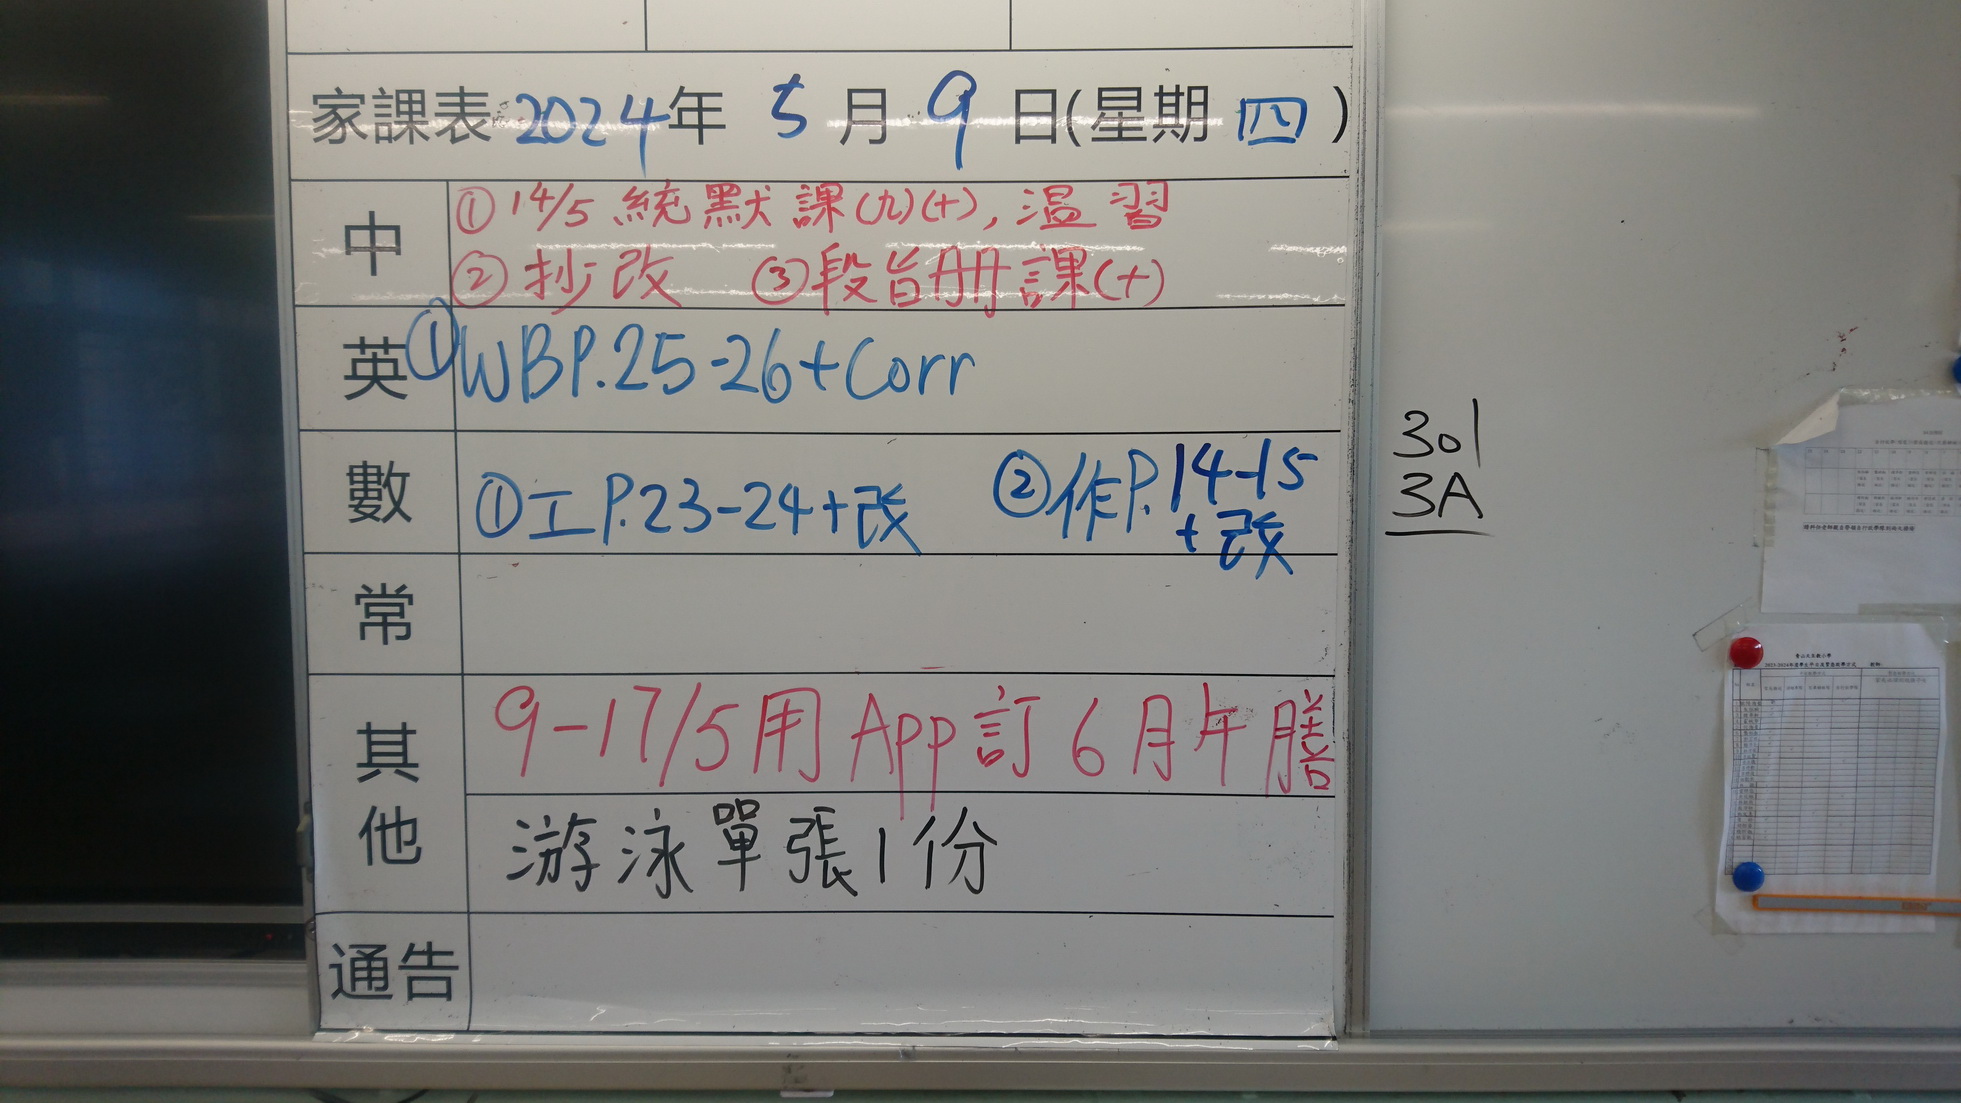 家課表 2024年 5月9日(星期四)
中
① 14/5 統默課(九)(十), 溫習
② 抄改 ③段旨册課(十)
英
①WBP.25-26+Corr
數
①工P.23-24+改 ②作P.14-15
+改
常
其他
9-17/5用App訂6月午膳
游泳單張1份
通告
301
3A